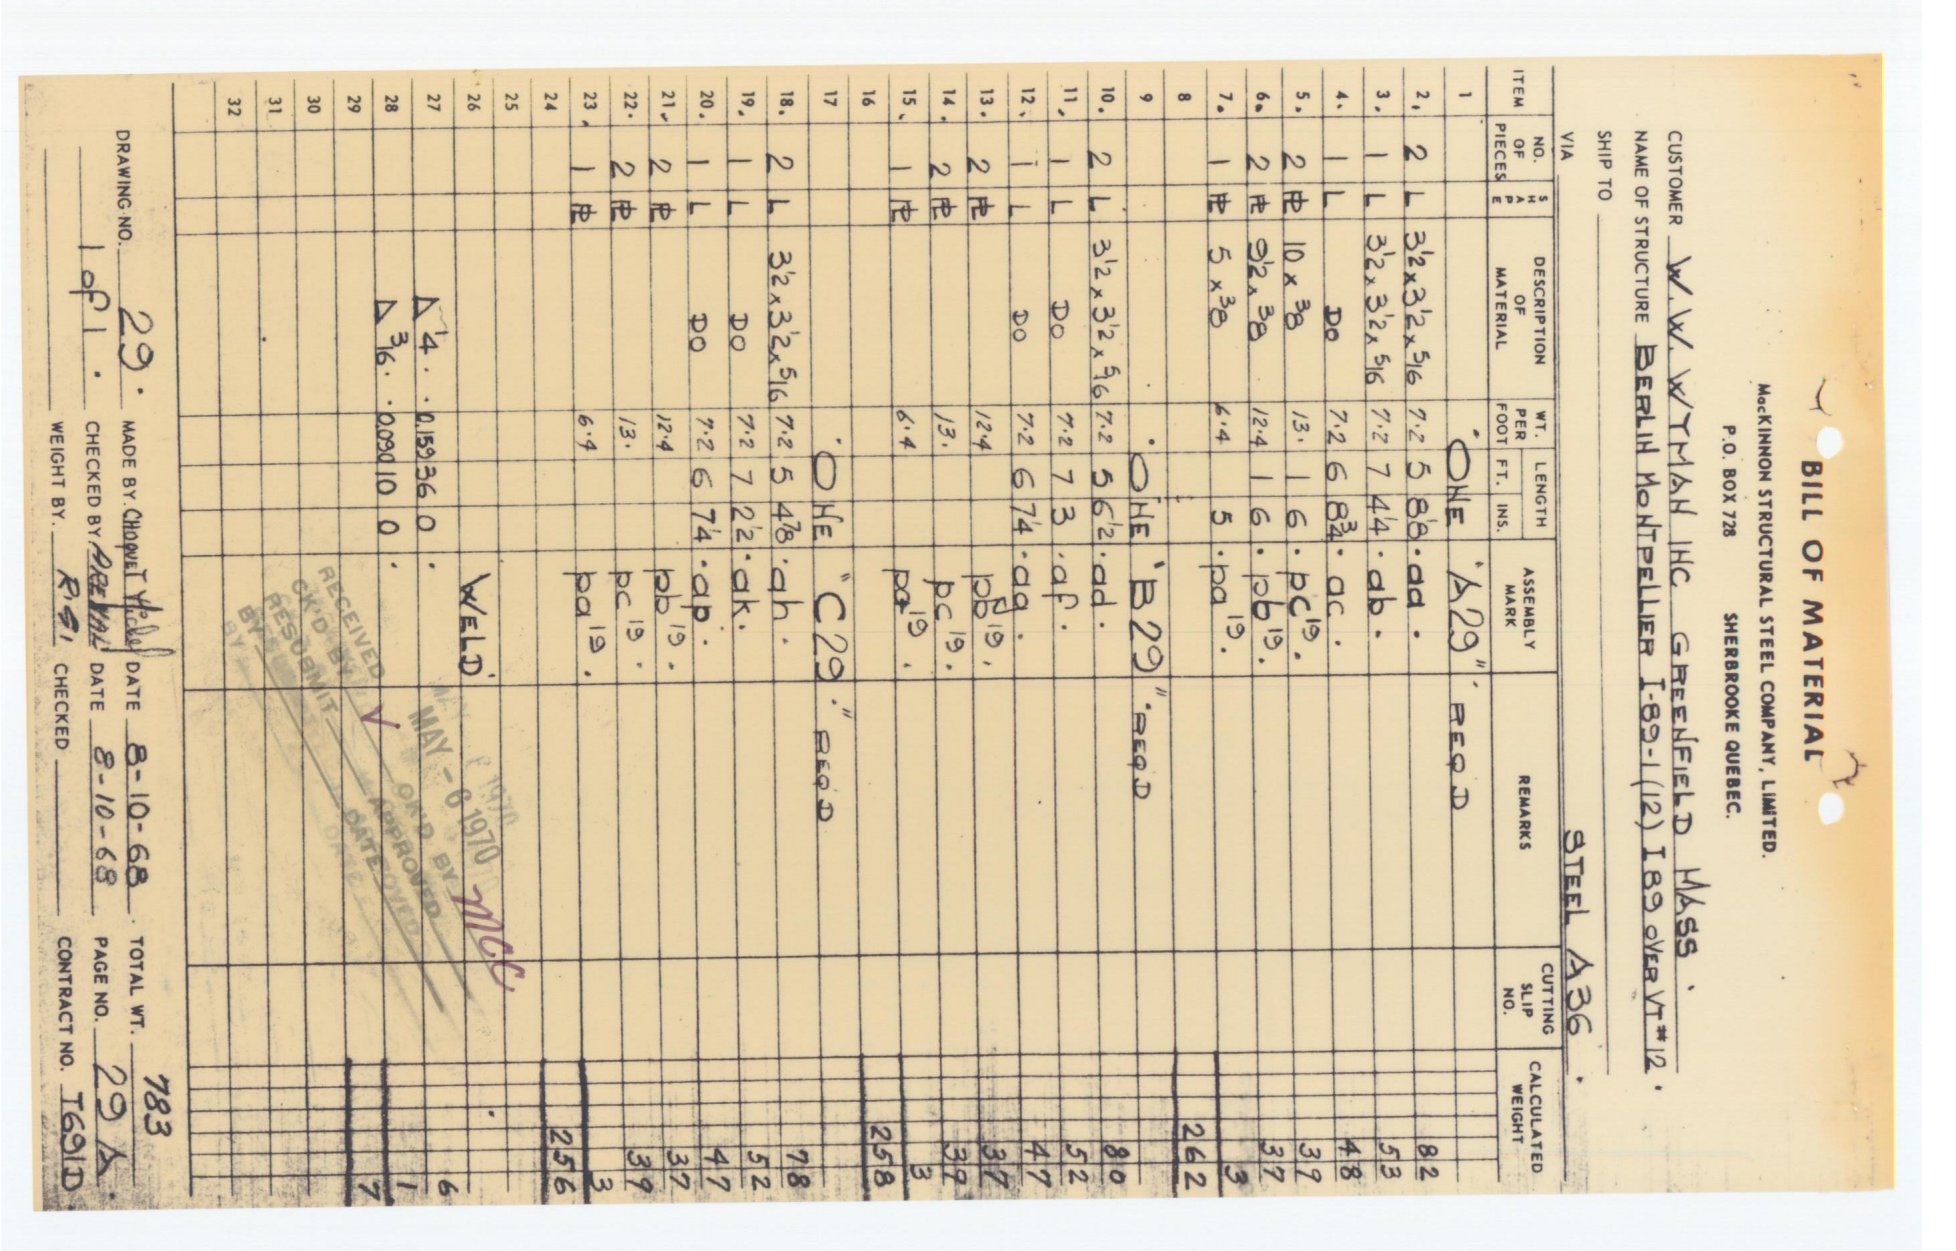 BILL OF MATERIAL
MacKINNON STRUCTURAL STEEL COMPANY, LIMITED.
P.O. BOX 728 SHERBROOKE QUEBEC.
CUSTOMER W. W. WYMAN INC GREENFIELD MASS.
NAME OF STRUCTURE BERLIN MONTPELLIER I-89-1(12) I 89 OVER VT #12.
SHIP TO
VIA STEEL A36.
ITEM NO. OF PIECES SHAPE DESCRIPTION OF MATERIAL WT. PER FOOT LENGTH FT. INS. ASSEMBLY MARK REMARKS CUTTING SLIP NO. CALCULATED WEIGHT
1 ONE "A29" REQD
2. 2 L 3 1/2 x 3 1/2 x 5/16 7.2 5 8 1/8 aa. 82
3. 1 L 3 1/2 x 3 1/2 x 5/16 7.2 7 4 1/4 ab. 53
4. 1 L DO 7.2 6 8 3/4 ac. 48
5. 2 PL 10 x 3/8 13. 1 6 pc19. 39
6. 2 PL 9 1/2 x 3/8 12.4 1 6 pb19. 37
7. 1 PL 5 x 3/8 6.4 5 pa19. 3
8 262
9 ONE "B29" REQD
10. 2 L 3 1/2 x 3 1/2 x 5/16 7.2 5 6 1/2 ad. 80
11. 1 L DO 7.2 7 3 af. 52
12. 1 L DO 7.2 6 7 1/4 ag. 47
13. 2 PL 12.4 pb19. 37
14. 2 PL 13. pc19. 39
15. 1 PL 6.4 pa19. 3
16 258
17 ONE "C29" REQD
18. 2 L 3 1/2 x 3 1/2 x 5/16 7.2 5 4 7/8 ah. 78
19. 1 L DO 7.2 7 2 1/2 ak. 52
20. 1 L DO 7.2 6 7 1/4 ap. 47
21. 2 PL 12.4 pb19. 37
22. 2 PL 13. pc19. 39
23. 1 PL 6.4 pa19. 3
24 256
25
26 WELD
27 Δ 1/4. 0.159 36 0. 6
28 Δ 3/16. 0.090 10 0. 1
29 7
30
31
32
RECEIVED MAY - 6 1970
CK'D BY OK'D BY MCC
RESUBMIT APPROVED
BY DATE
DRAWING NO. 29. MADE BY DATE 8-10-68. TOTAL WT. 783
1 of 1. CHECKED BY DATE 8-10-68 PAGE NO. 29 A.
WEIGHT BY. CHECKED CONTRACT NO. I691D.